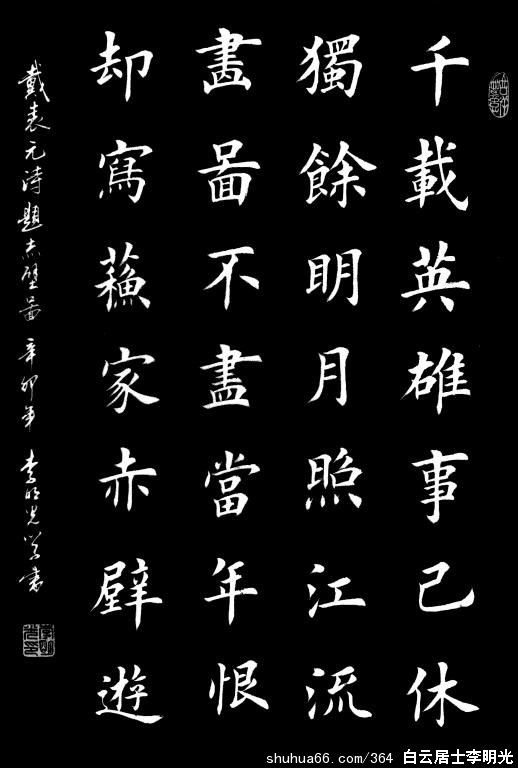 千載英雄事已休
獨餘明月照江流
畫啚不盡當年恨
却寫蘓家赤壁遊
戴表元詩題赤壁啚 辛卯年 李明光 書
shuhua66.com/364 白云居士李明光